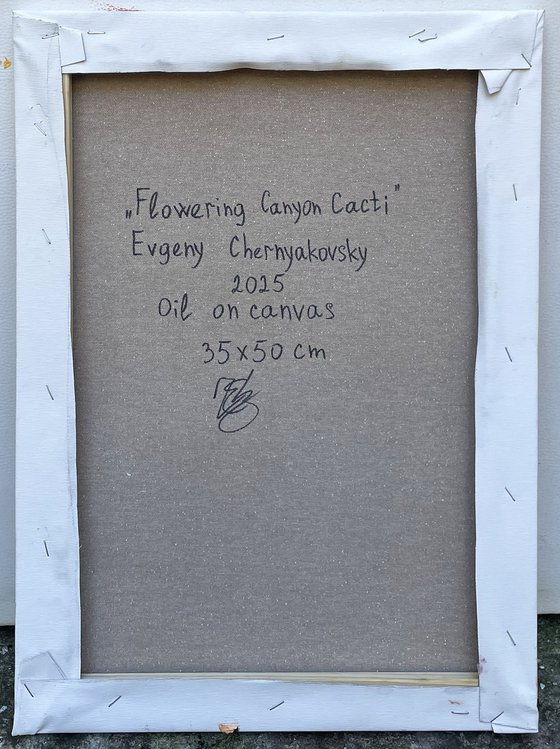 „Flowering Canyon Cacti"
Evgeny Chernyakovsky
2025
Oil on canvas
35x50 cm